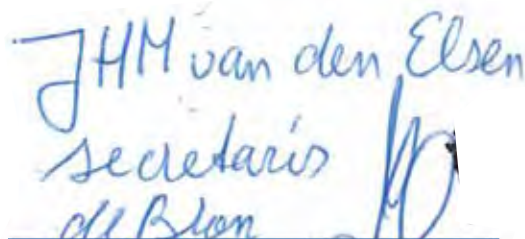 JHM van den Elsen
secretaris
de Bron